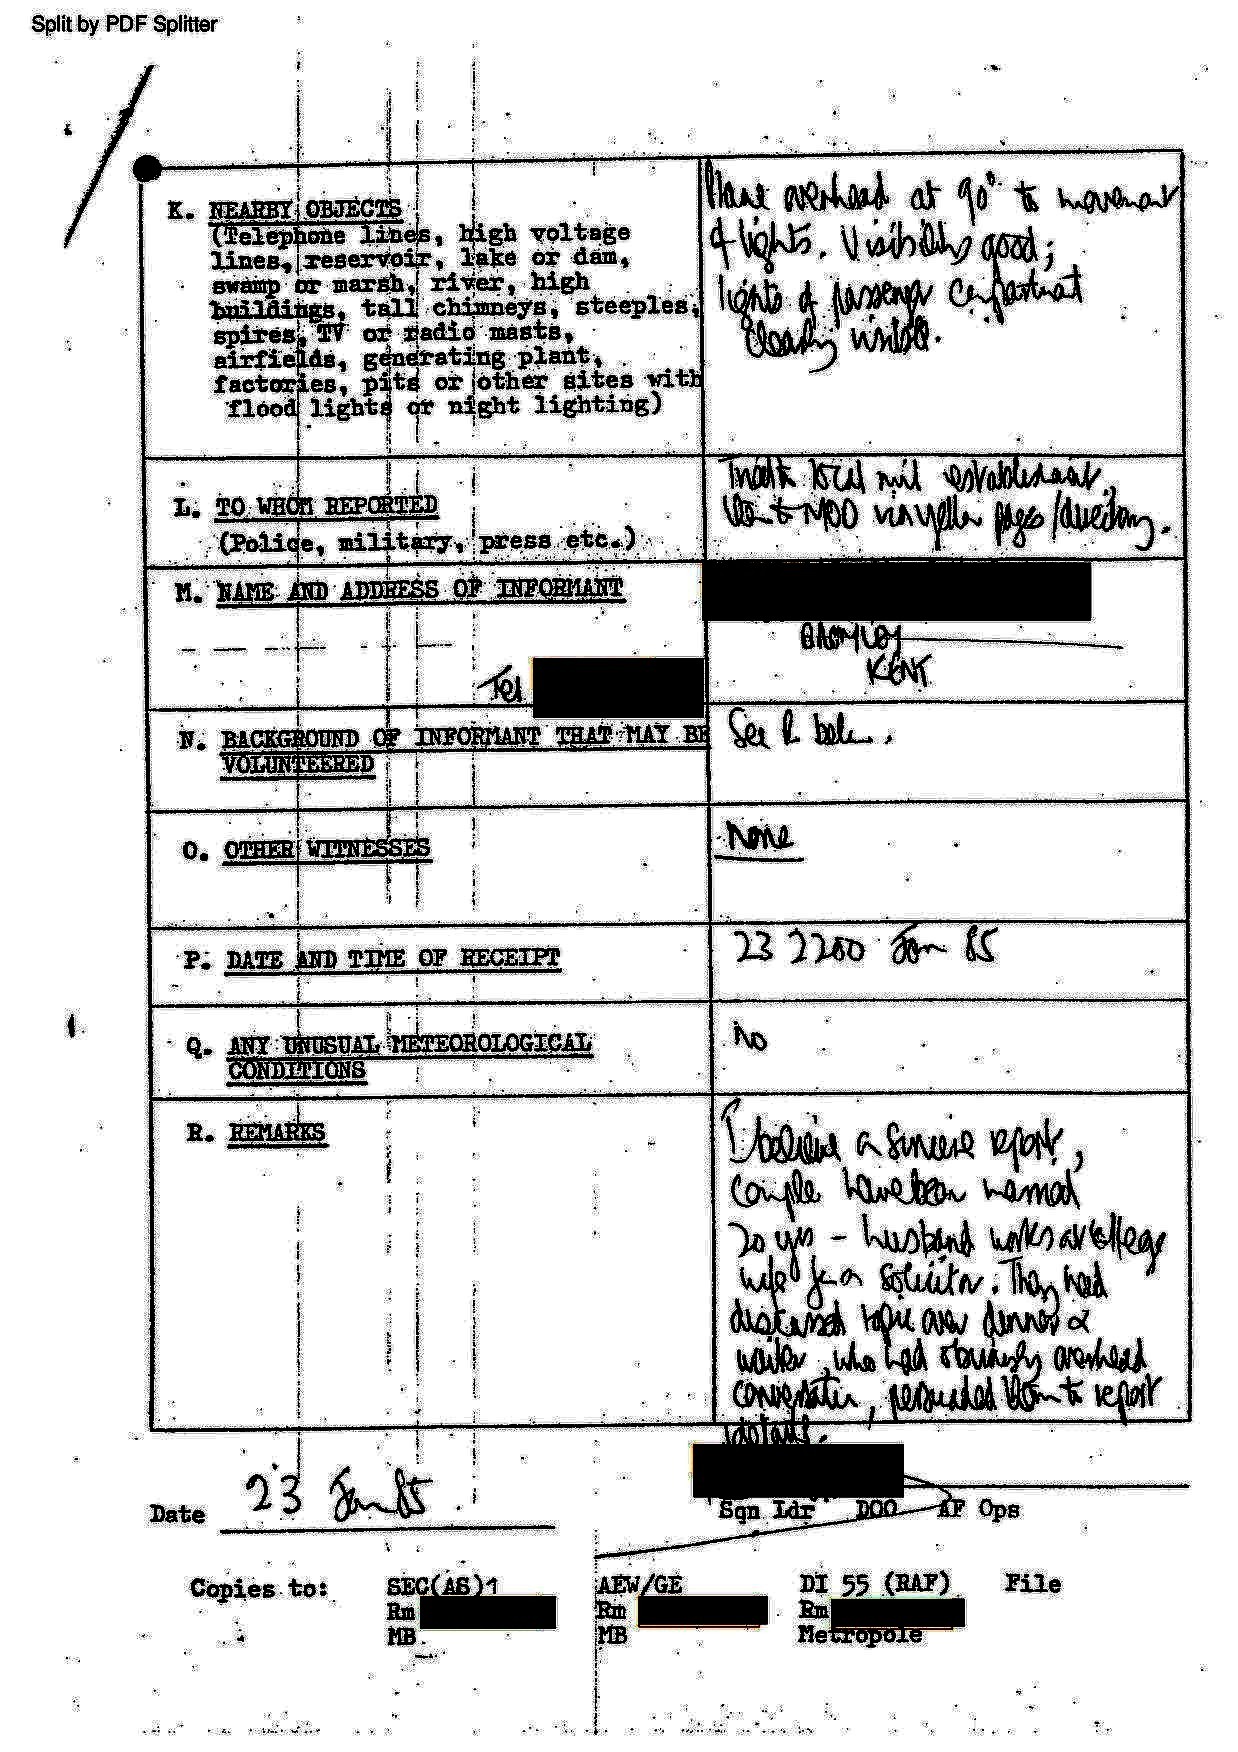 Split by PDF Splitter
K. NEARBY OBJECTS
(Telephone lines, high voltage
lines, reservoir, lake or dam,
swamp or marsh, river, high
buildings, tall chimneys, steeples,
spires, TV or radio masts,
airfields, generating plant,
factories, pits or other sites with
flood lights or night lighting)
Plane overhead at 90° to movement
of lights. Visibility good;
lights of passenger compartment
clearly visible.
L. TO WHOM REPORTED
(Police, military, press etc.)
Tried local mil establishment,
then to MOD via yellow pages/directory.
M. NAME AND ADDRESS OF INFORMANT
BROMLEY
KENT
Tel
N. BACKGROUND OF INFORMANT THAT MAY BE
VOLUNTEERED
See R below.
O. OTHER WITNESSES
None
P. DATE AND TIME OF RECEIPT
23 2200 Jan 85
Q. ANY UNUSUAL METEOROLOGICAL
CONDITIONS
No
R. REMARKS
I believe a sincere report,
couple have been married
20 yrs - husband works at college
wife for a solicitor. They had
discussed topic over dinner &
waiter, who had obviously overheard
conversation, persuaded them to report
details.
Date 23 Jan 85.
Sqn Ldr DOO AF Ops
Copies to: SEC(AS)1 AEW/GE DI 55 (RAF) File
Rm Rm Rm
MB. MB Metropole